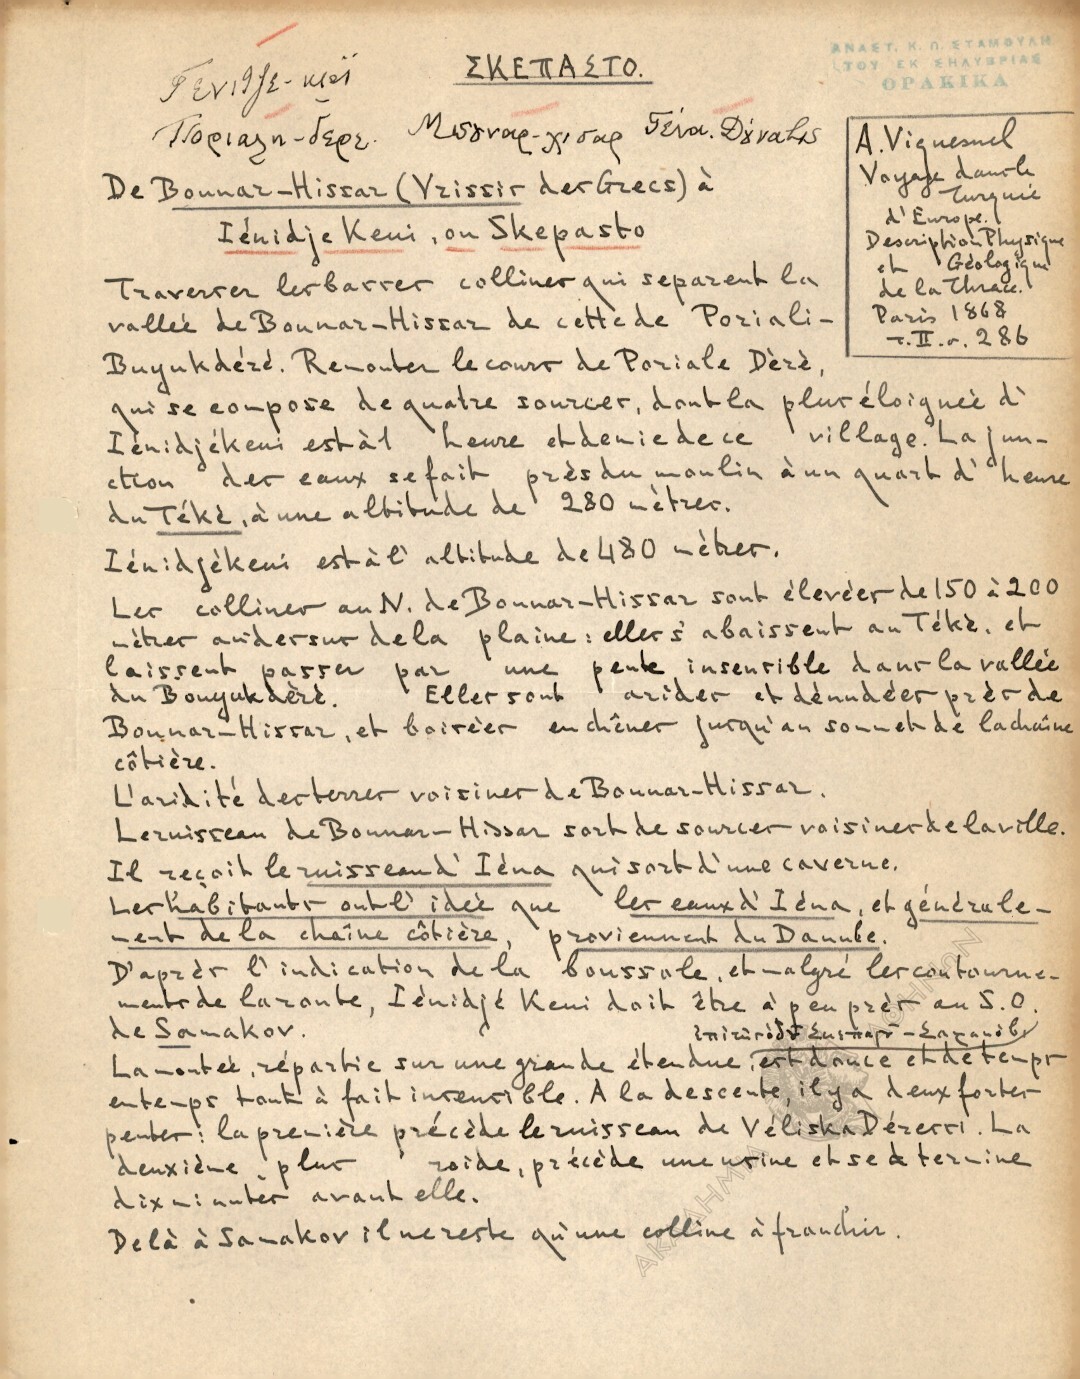 ΣΚΕΠΑΣΤΟ.
ΑΝΑΣΤ. Κ. Π. ΣΤΑΜΟΥΛΗ
ΤΟΥ ΕΚ ΣΗΛΥΒΡΙΑΣ
ΘΡΑΚΙΚΑ
Γενιτζε-κιοϊ
Ποριαλη-δερε. Μπουναρ-χισαρ Γένα. Δούναβις
A. Viquesnel
Voyage dans la
Turquie
d'Europe.
Description Physique
et Géologique
de la Thrace.
Paris 1868
τ. II. σ. 286
De Bounar-Hissar (Vrissir des Grecs) à
Iénidje Keui, ou Skepasto
Traverser les basses collines qui separent la
vallée de Bounar-Hissar de cette de Poriali-
Buyukdéré. Remonter le cours de Poriale Dèrè,
qui se compose de quatre sources, dont la plus éloignée d'
Iénidjékeui est à 1 heure et demie de ce village. La jun-
ction des eaux se fait près du moulin à un quart d'heure
du Téké, à une altitude de 280 mètres.
Iénidjékeui est à l'altitude de 480 mètres.
Les collines au N. de Bounar-Hissar sont élevées de 150 à 200
mètres au dessus de la plaine: elles s'abaissent au Téké, et
laissent passer par une pente insensible dans la vallée
du Bouyukdèré. Elles sont arides et dénudées près de
Bounar-Hissar, et boisées en chênes jusqu'au sommet de la chaîne
côtière.
L'aridité des terres voisines de Bounar-Hissar.
Le ruisseau de Bounar-Hissar sort de sources voisines de la ville.
Il reçoit le ruisseau d'Iéna qui sort d'une caverne.
Les habitants ont l'idée que les eaux d'Iéna, et générale-
ment de la chaîne côtière, proviennent du Danube.
D'après l'indication de la boussole, et malgré les contourne-
ments de la route, Iénidjé Keui doit être à peu près au S.O.
de Samakov.
La montée, répartie sur une grande étendue, est douce et de temps
en temps tout à fait insensible. A la descente, il y a deux fortes
pentes: la première précède le ruisseau de Véliska Déressi. La
deuxième, plus roide, précède une usine et se termine
dix minutes avant elle.
De là à Samakov il ne reste qu'une colline à franchir.
ΑΚΑΔΗΜΙΑ ΑΘΗΝΩΝ